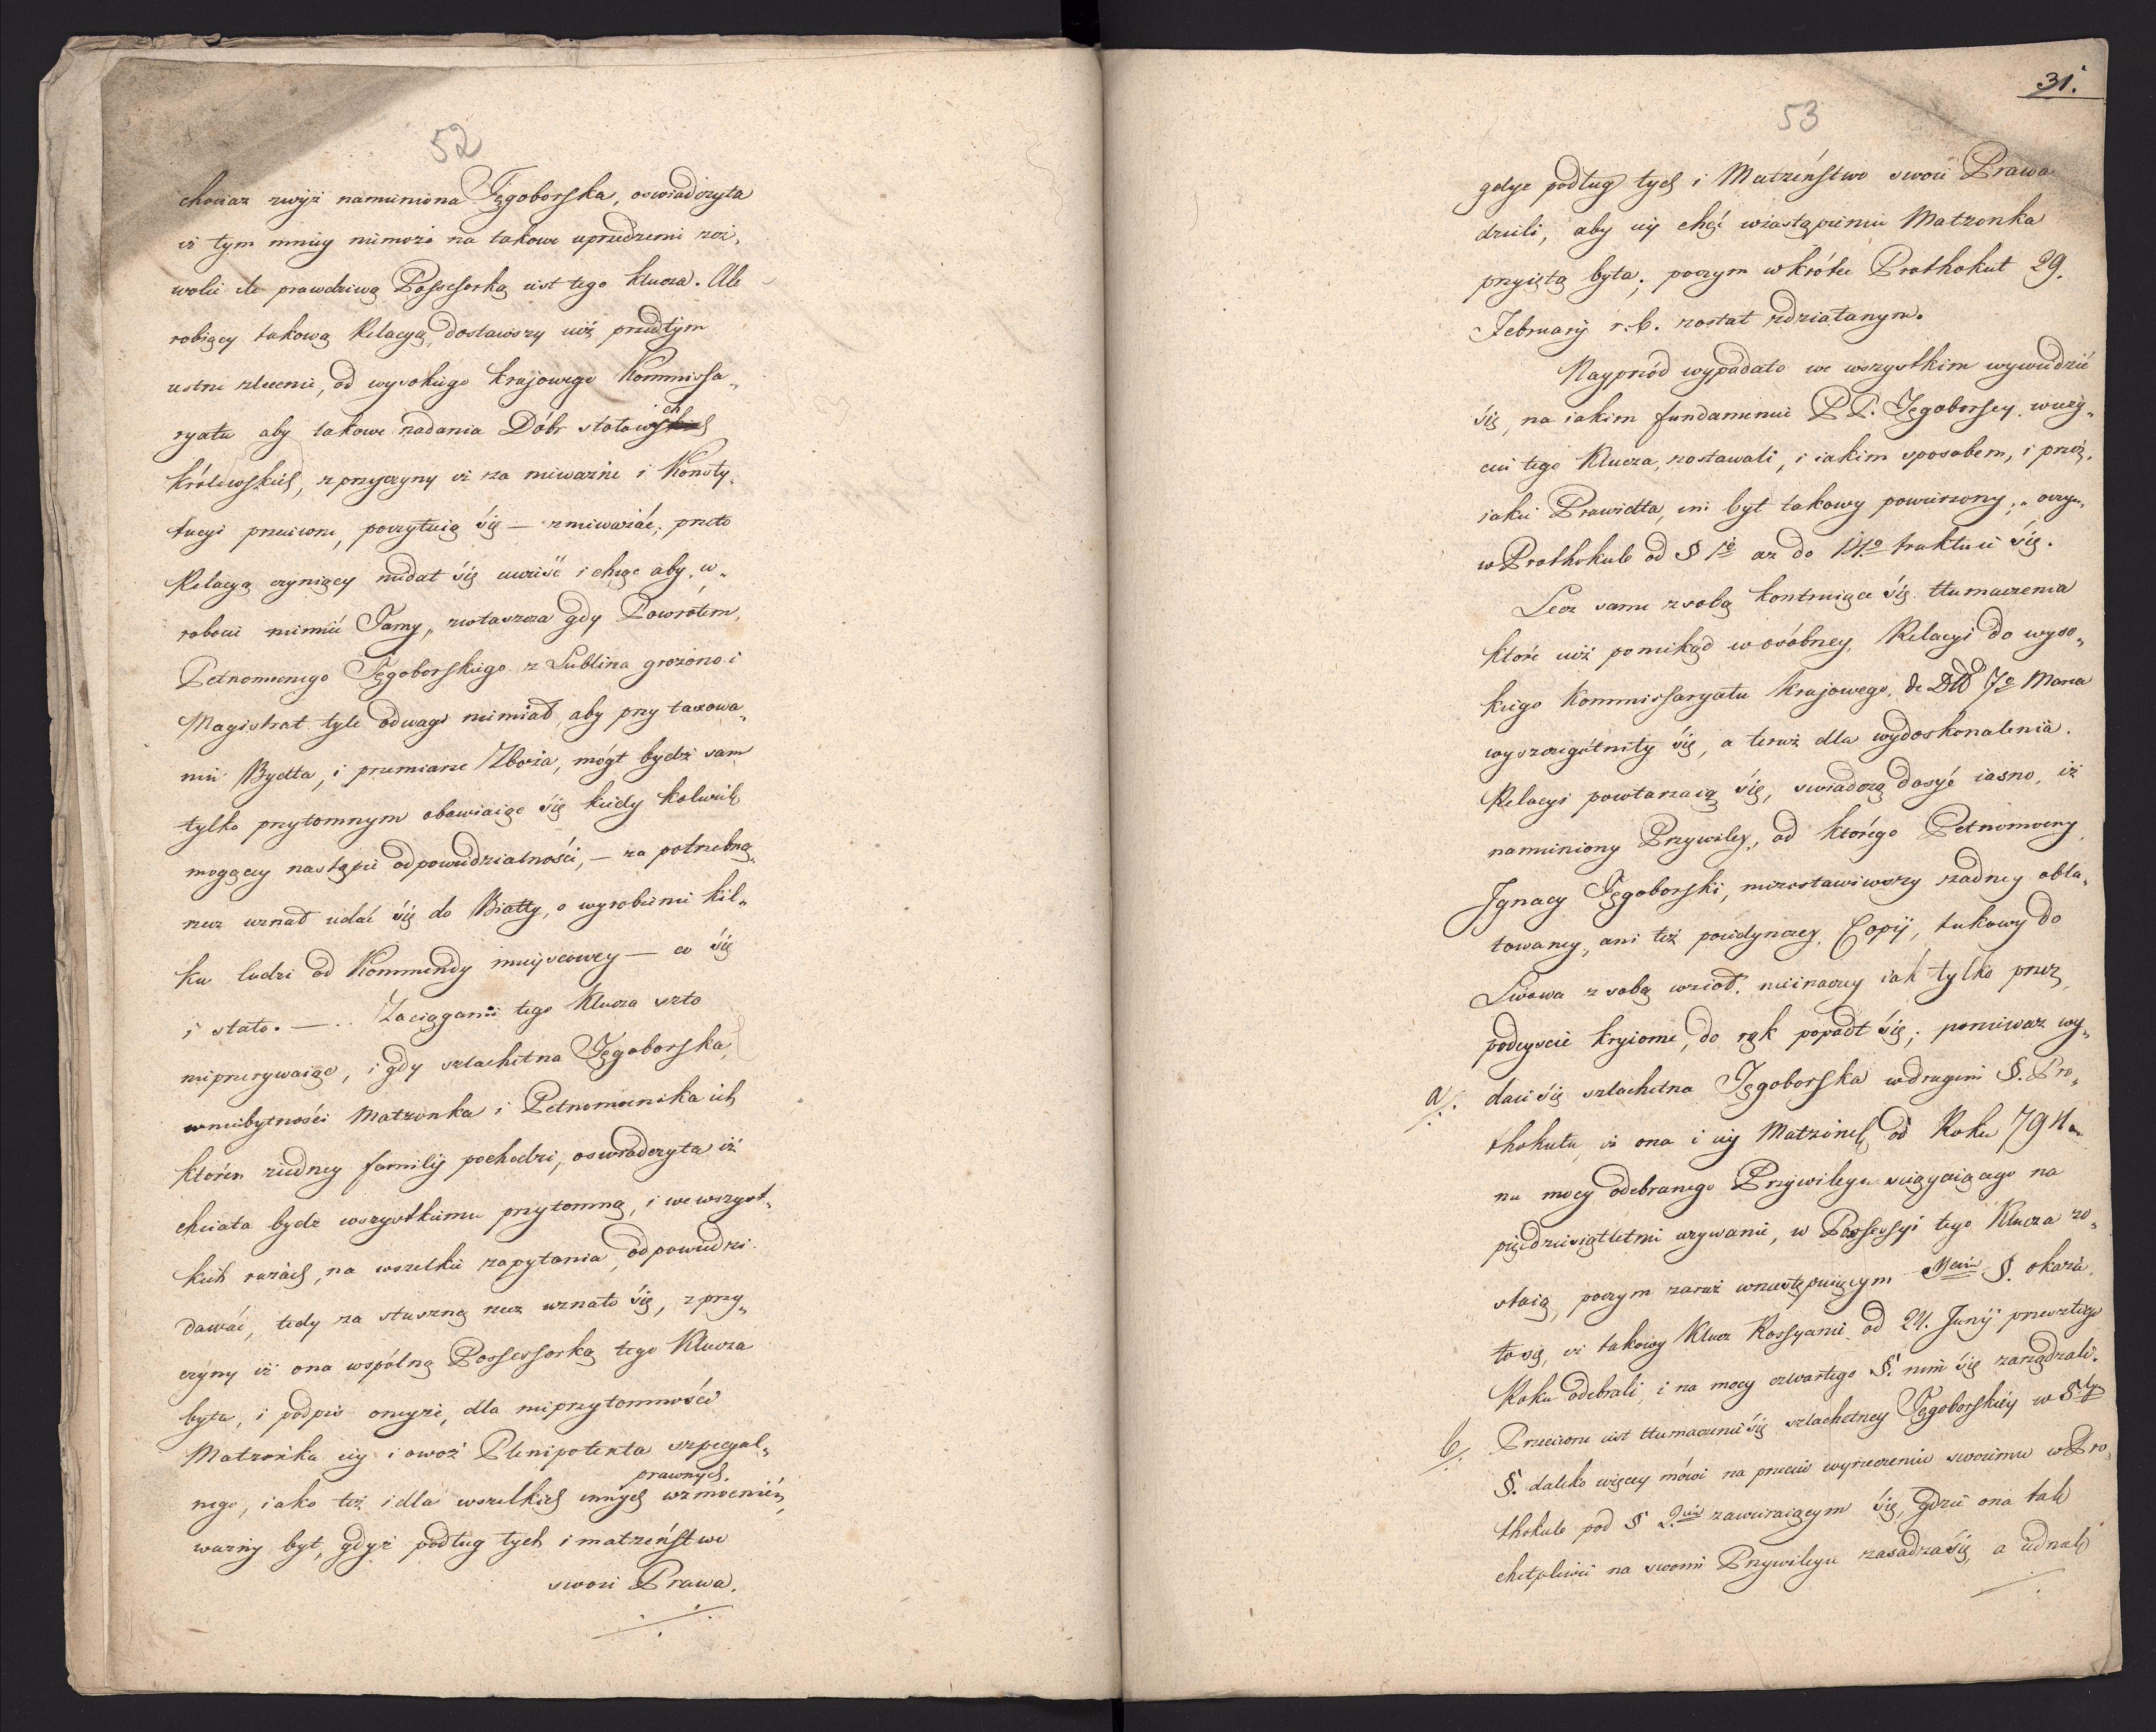 52
chociaz zwyż namieniona Tęgoborska, oswiadczyła
iż tym mniey niemoże na takowe uprzedzenie zez„
wolić ile prawdziwą Possesorką iest tego klucza. Ale
robiący takową Relacyą, dostawszy iuż przedtym
ustne zlecenie, od wysokiego krajowego Kommissa„
ryatu aby takowe nadania Dóbr stołowych
królewskich, z przyczyny iż za nieważne i Konsty„
tucyi przeciwne, poczytuią się — znieważać, przeto
Relacyą czyniący niedał się uwieść i chcąc aby w„
robocie niemieć Tamy, zwłaszcza gdy Powrotem,
Pełnomocnego Tęgoborskiego z Lublina grożono i
Magistrat tyle odwagi niemiał, aby przy taxowa„
niu Bydła, i przemiarze Zboża, mógł bydź sam
tylko przytomnym obawiaiąc się kiedy kolwiek
mogącey nastąpić odpowiedzialności, — za potrzebną„
rzecz uznał udać się do Białły, o wyrobienie kil„
ku ludzi od Kommendy mieyscowey — co się
i stało. — .. Zaciąganie tego Klucza szło
nieprzerywaiąc, i gdy szlachetna Tęgoborska,
w niebytności Matzonka i Pełnomocnika ich
ktoren ziedney familij pochodzi, oswiadczyła iż
chciała bydz wszystkiemu przytomną, i we wszyst„
kich razach, na wszelkie zapytania, odpowiedzi
dawać, tedy za słuszną rzecz uznało się, z przy„
czyny iż ona wspólną Possessorką tego Klucza
była, i podpis oneyże, dla nieprzytomności
Matzonka iey i owoż Plenipotenta szpecyal„
prawnych.
nego, iako też i dla wszelkich innych wzmocnień,
ważny był, gdyż podług tych i matzeństwo
swoie Prawa.
31.
53
gdyz podług tych i Matzeństwo swoie Prawa
dzieli, aby iey chęć wzastąpieniu Matzonka
przyiętą była; poczym wkrótce Prothokuł 29.
February r. b. został zdziałanym.
Nayprzód wypadało we wszystkim wywiedzić
się, na iakim fundamencie P P. Tęgoborscy, wuży„
ciu tego Klucza, zostawali, i iakim sposobem, i przez,
iakie Prawidła, im był takowy powierzony; „ oczym
w Prothokule od § 1o az do 14o traktuie się.
Lecz same z sobą kontruiące się tłumaczenia
ktore iuż poniekąd w osóbney, Relacyi do wyso„
kiego Kommissaryatu krajowego, de Dto 7o Marca
wyszczegulniły się, a teraz dla wydoskonalenia
Relacyi powtarzaią się, swiadczą dosyć iasno, iż
namieniony Przywiley, od którego Pełnomocny
Ignacy Tęgoborski, niezostawiwszy żadney obla„
towaney, ani też poiedynczey, Copij, takowy do
Lwowa z sobą wzioł, nieinaczey iak tylko przez
podeyscie kryiome, do rąk popadł się; poniewaz wy„
a/. daie się szlachetna Tęgoborska wdrugim §. Pro„
thokułu, iż ona i iey Matzonek, od Roku 794.
na mocy odebranego Przywileyu sciągaiącego na
pięcdziesiątletnie używanie, w Possessyi tego Klucza zo„
staią, poczym zaraz wnastępuiącym 3cim §. okaza„
ło się, iż takowy Klucz Rossyanie od 24. Junij przeszłego
Roku odebrali, i na mocy czwartego §. nim się zarządzali.
b/. Przeciwne iest tłumaczenie się szlachetney Tęgoborskiey w 5tym
§. daleko więcey mówi na przeciw wyrzeczeniu swoiemu w Pro„
thokule pod § 2im zawieraiącym się, gdzie ona tak
chełpliwie na swoim Przywileyu zasadza się, a iednak